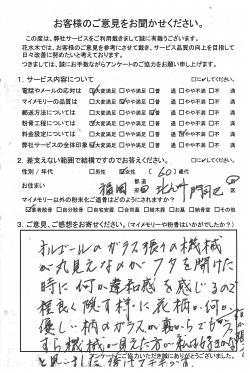 お客様のご意見をお聞かせください。
この度は、弊社サービスをご利用戴きまして誠に有難うございます。
花水木では、お客様のご意見を参考にさせて戴き、サービス品質の向上を目指して
日々改善に努めたいと考えております。
つきましては、誠にお手数ながらアンケートのご協力をお願い申し上げます。
1. サービス内容について
電話やメールの応対は □大変満足 □やや満足 □普通 □やや不満 □不満
マイメモリーの品質は □大変満足 □やや満足 □普通 □やや不満 □不満
郵送方法について □大変満足 □やや満足 □普通 □やや不満 □不満
粉骨工程について □大変満足 □やや満足 □普通 □やや不満 □不満
料金設定について □大変満足 □やや満足 □普通 □やや不満 □不満
弊社サービスの全体印象 □大変満足 □やや満足 □普通 □やや不満 □不満
2. 差支えない範囲で結構ですのでお答えください。
性別/年代 □男性 □女性 (60)歳代
お住まい 福岡 北九州 門司
マイメモリー以外の粉末化ご遺骨はどのようにされますか?
3. ご意見、ご感想をお寄せください。(マイメモリーや粉骨はいかがでしたか?)
オルゴールのガラス張りの機械
が丸見えなのがフタを開けた
時に何か違和感を感じるので
程良く隠す様に花柄か何か
優しい柄のガラスか
すら機械が見えた方が
と思いました
アンケートにご協力いただき誠にありがとうございました。